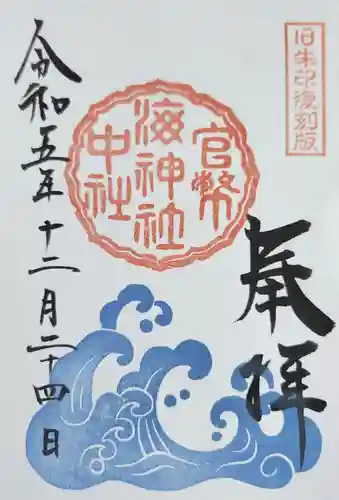 旧朱印復刻版
奉拝
官幣
海神社
中社
令和五年十二月二十四日